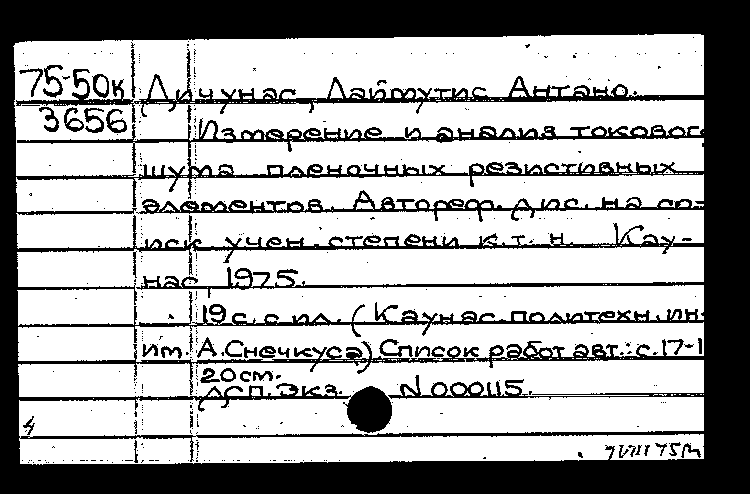 75-50к Личунас, Лаймутис Антано.
3656 Измерение и анализ токового
шума пленочных резистивных
элементов. Автореф. дис. на со-
иск. учен. степени к.т.н. Кау-
нас, 1975.
19 с. с ил. (Каунас. политехн. ин-
им. А. Снечкуса). Список работ авт.: с. 17-1
20 см.
Дсп. Экз. N 000115.
4
7 VIII 75